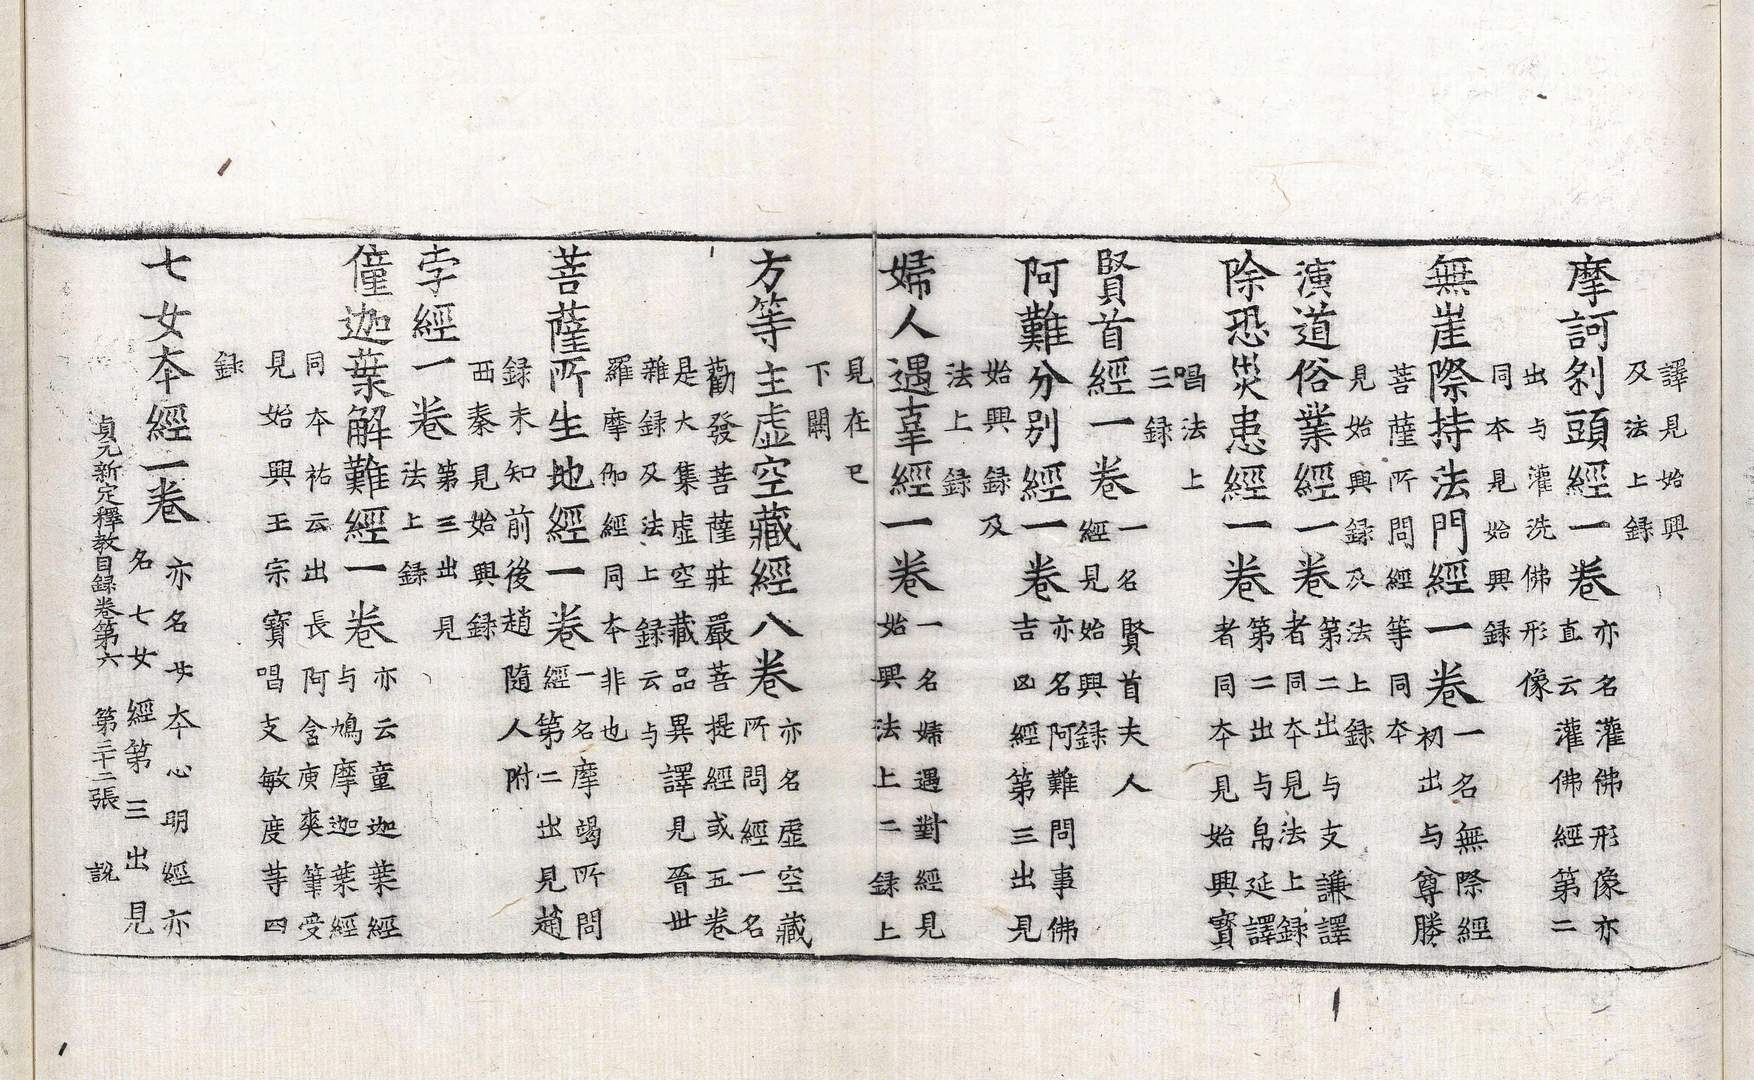 譯見始興
及法上録
摩訶剎頭經一卷 亦名灌佛形像亦
直云灌佛經第二
出与灌洗佛形像
同本見始興録
無崖際持法門經一卷 一名無際經
初出与尊勝
菩薩所問經等同本
見始興録及法上録
演道俗業經一卷 第二出与支謙譯
者同本見法上録
除恐災患經一卷 第二出与帛延譯
者同本見始興寶
唱法上
三録
賢首經一卷 一名賢首夫人
經見始興録
阿難分別經一卷 亦名阿難問事佛
吉凶經第三出見
始興録及
法上録
婦人遇辜經一卷 一名婦遇對經見
始興法上二録上
見在已
下闕
方等主虛空藏經八卷 亦名虛空藏
所問經一名
勸發菩薩莊嚴菩提經或五卷
是大集虛空藏品異譯見晉世
雜録及法上録云与
羅摩伽經同本非也
菩薩所生地經一卷 一名摩竭所問
經第二出見趙
録未知前後趙隨人附
西秦見始興録
孛經一卷 第三出見
法上録
僮迦葉解難經一卷 亦云童迦葉經
与鳩摩迦葉經
同本祐云出長阿含庾爽筆受
見始興王宗寶唱支敏度等四
録
七女本經一卷 亦名女本心明經亦
名七女經第三出見
貞元新定釋教目録卷第六 第三十二張 說